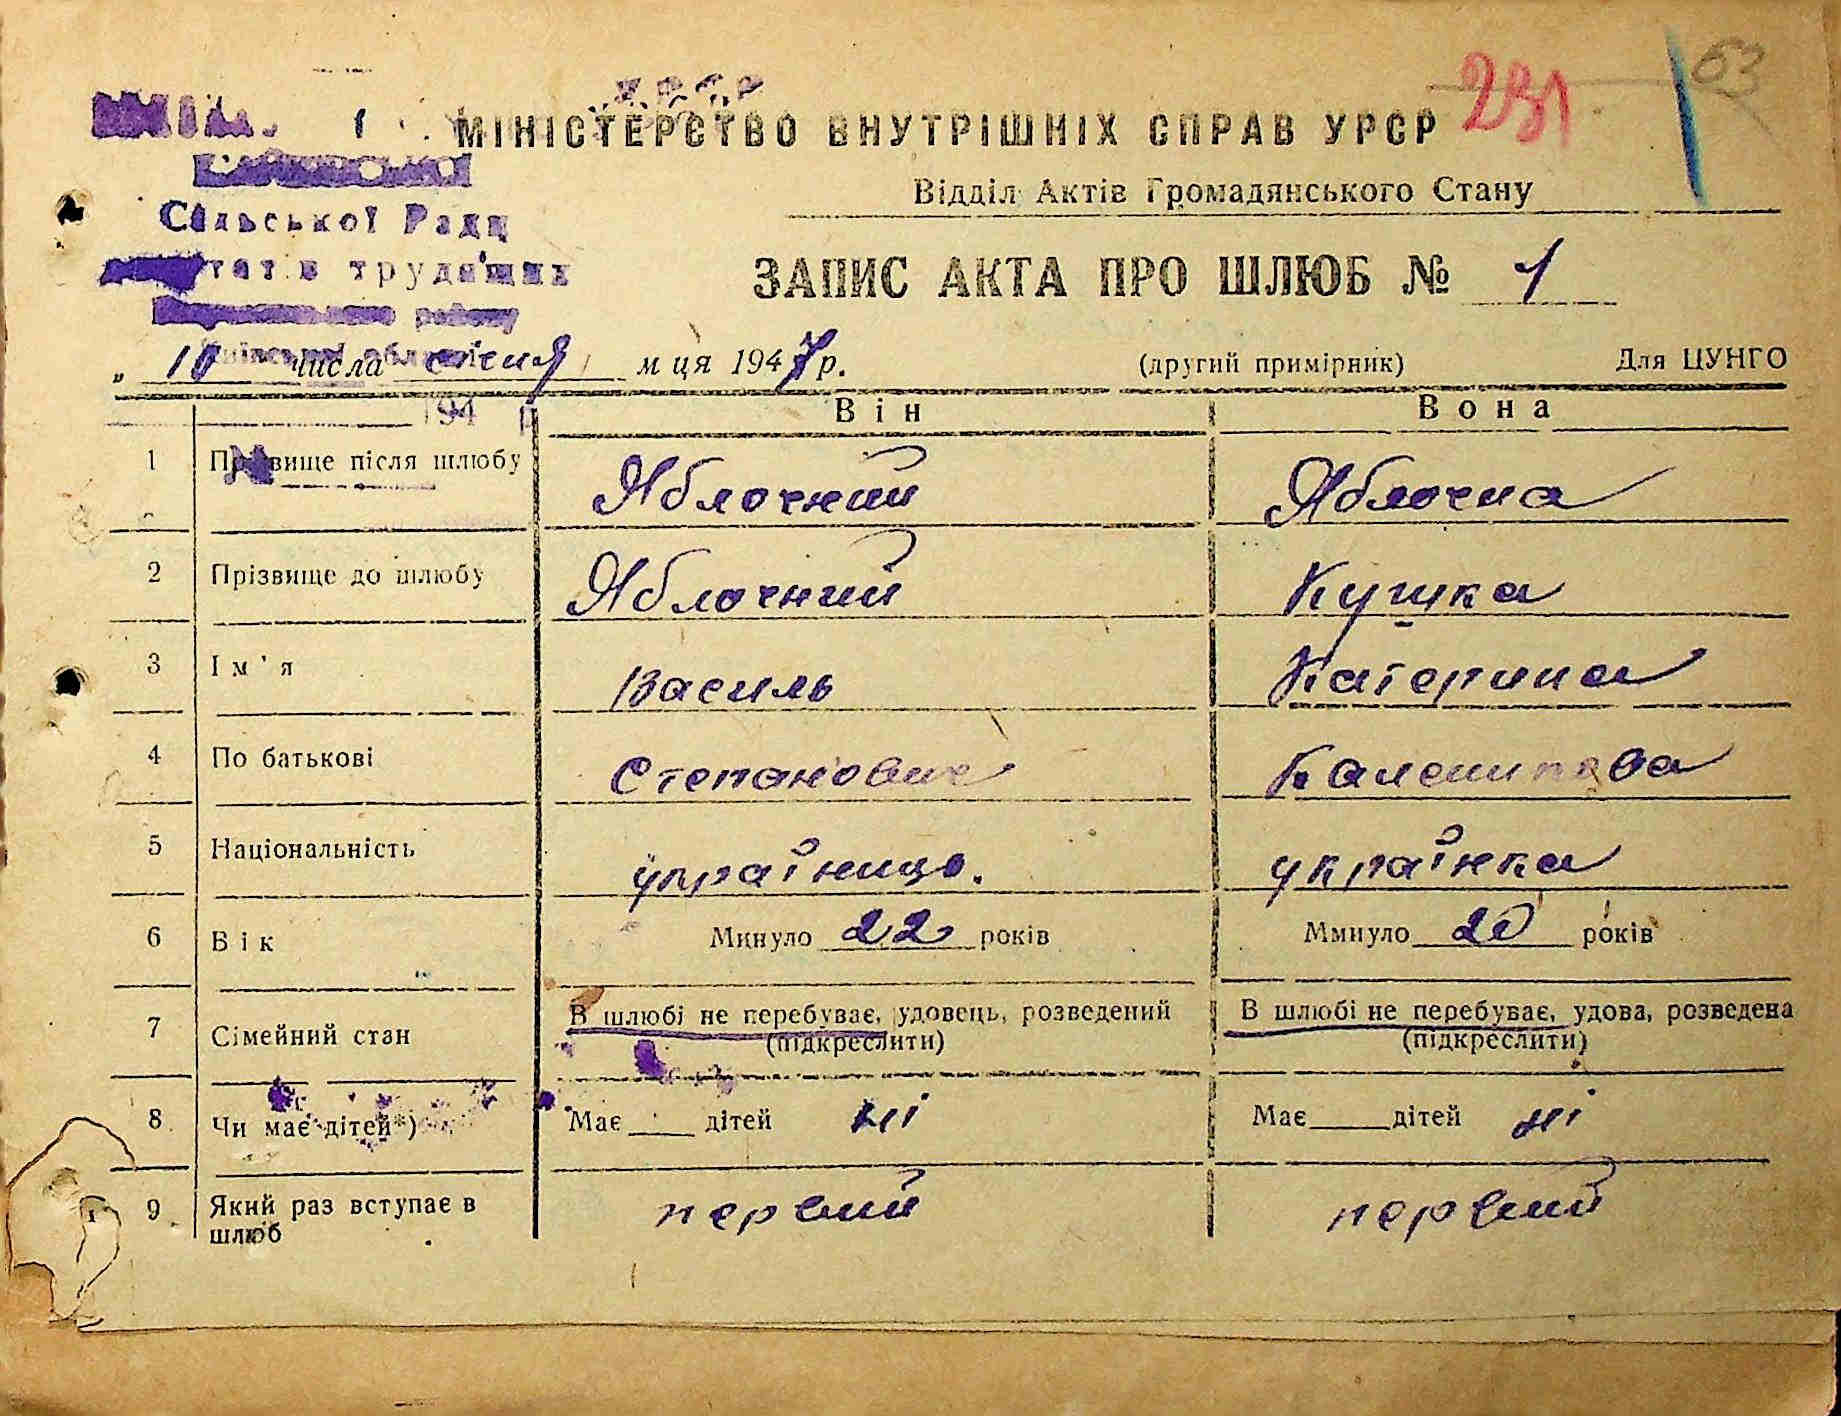 УРСР
231
63
МІНІСТЕРСТВО ВНУТРІШНІХ СПРАВ УРСР
Відділ Актів Громадянського Стану
Сільської Ради
трудящих
району
області
ЗАПИС АКТА ПРО ШЛЮБ № 1
„ 10 числа січня м ця 1947 р. (другий примірник) Для ЦУНГО
194 р
Він Вона
1 Прізвище після шлюбу Яблочний Яблочна
2 Прізвище до шлюбу Яблочний Кушка
3 Ім'я Василь Катерина
4 По батькові Степанович
5 Національність українець. українка
6 Вік Минуло 22 років Минуло 20 років
7 Сімейний стан В шлюбі не перебуває, удовець, розведений (підкреслити) В шлюбі не перебуває, удова, розведена (підкреслити)
8 Чи має дітей*) Має____ дітей ні Має____дітей ні
9 Який раз вступає в шлюб первий первий